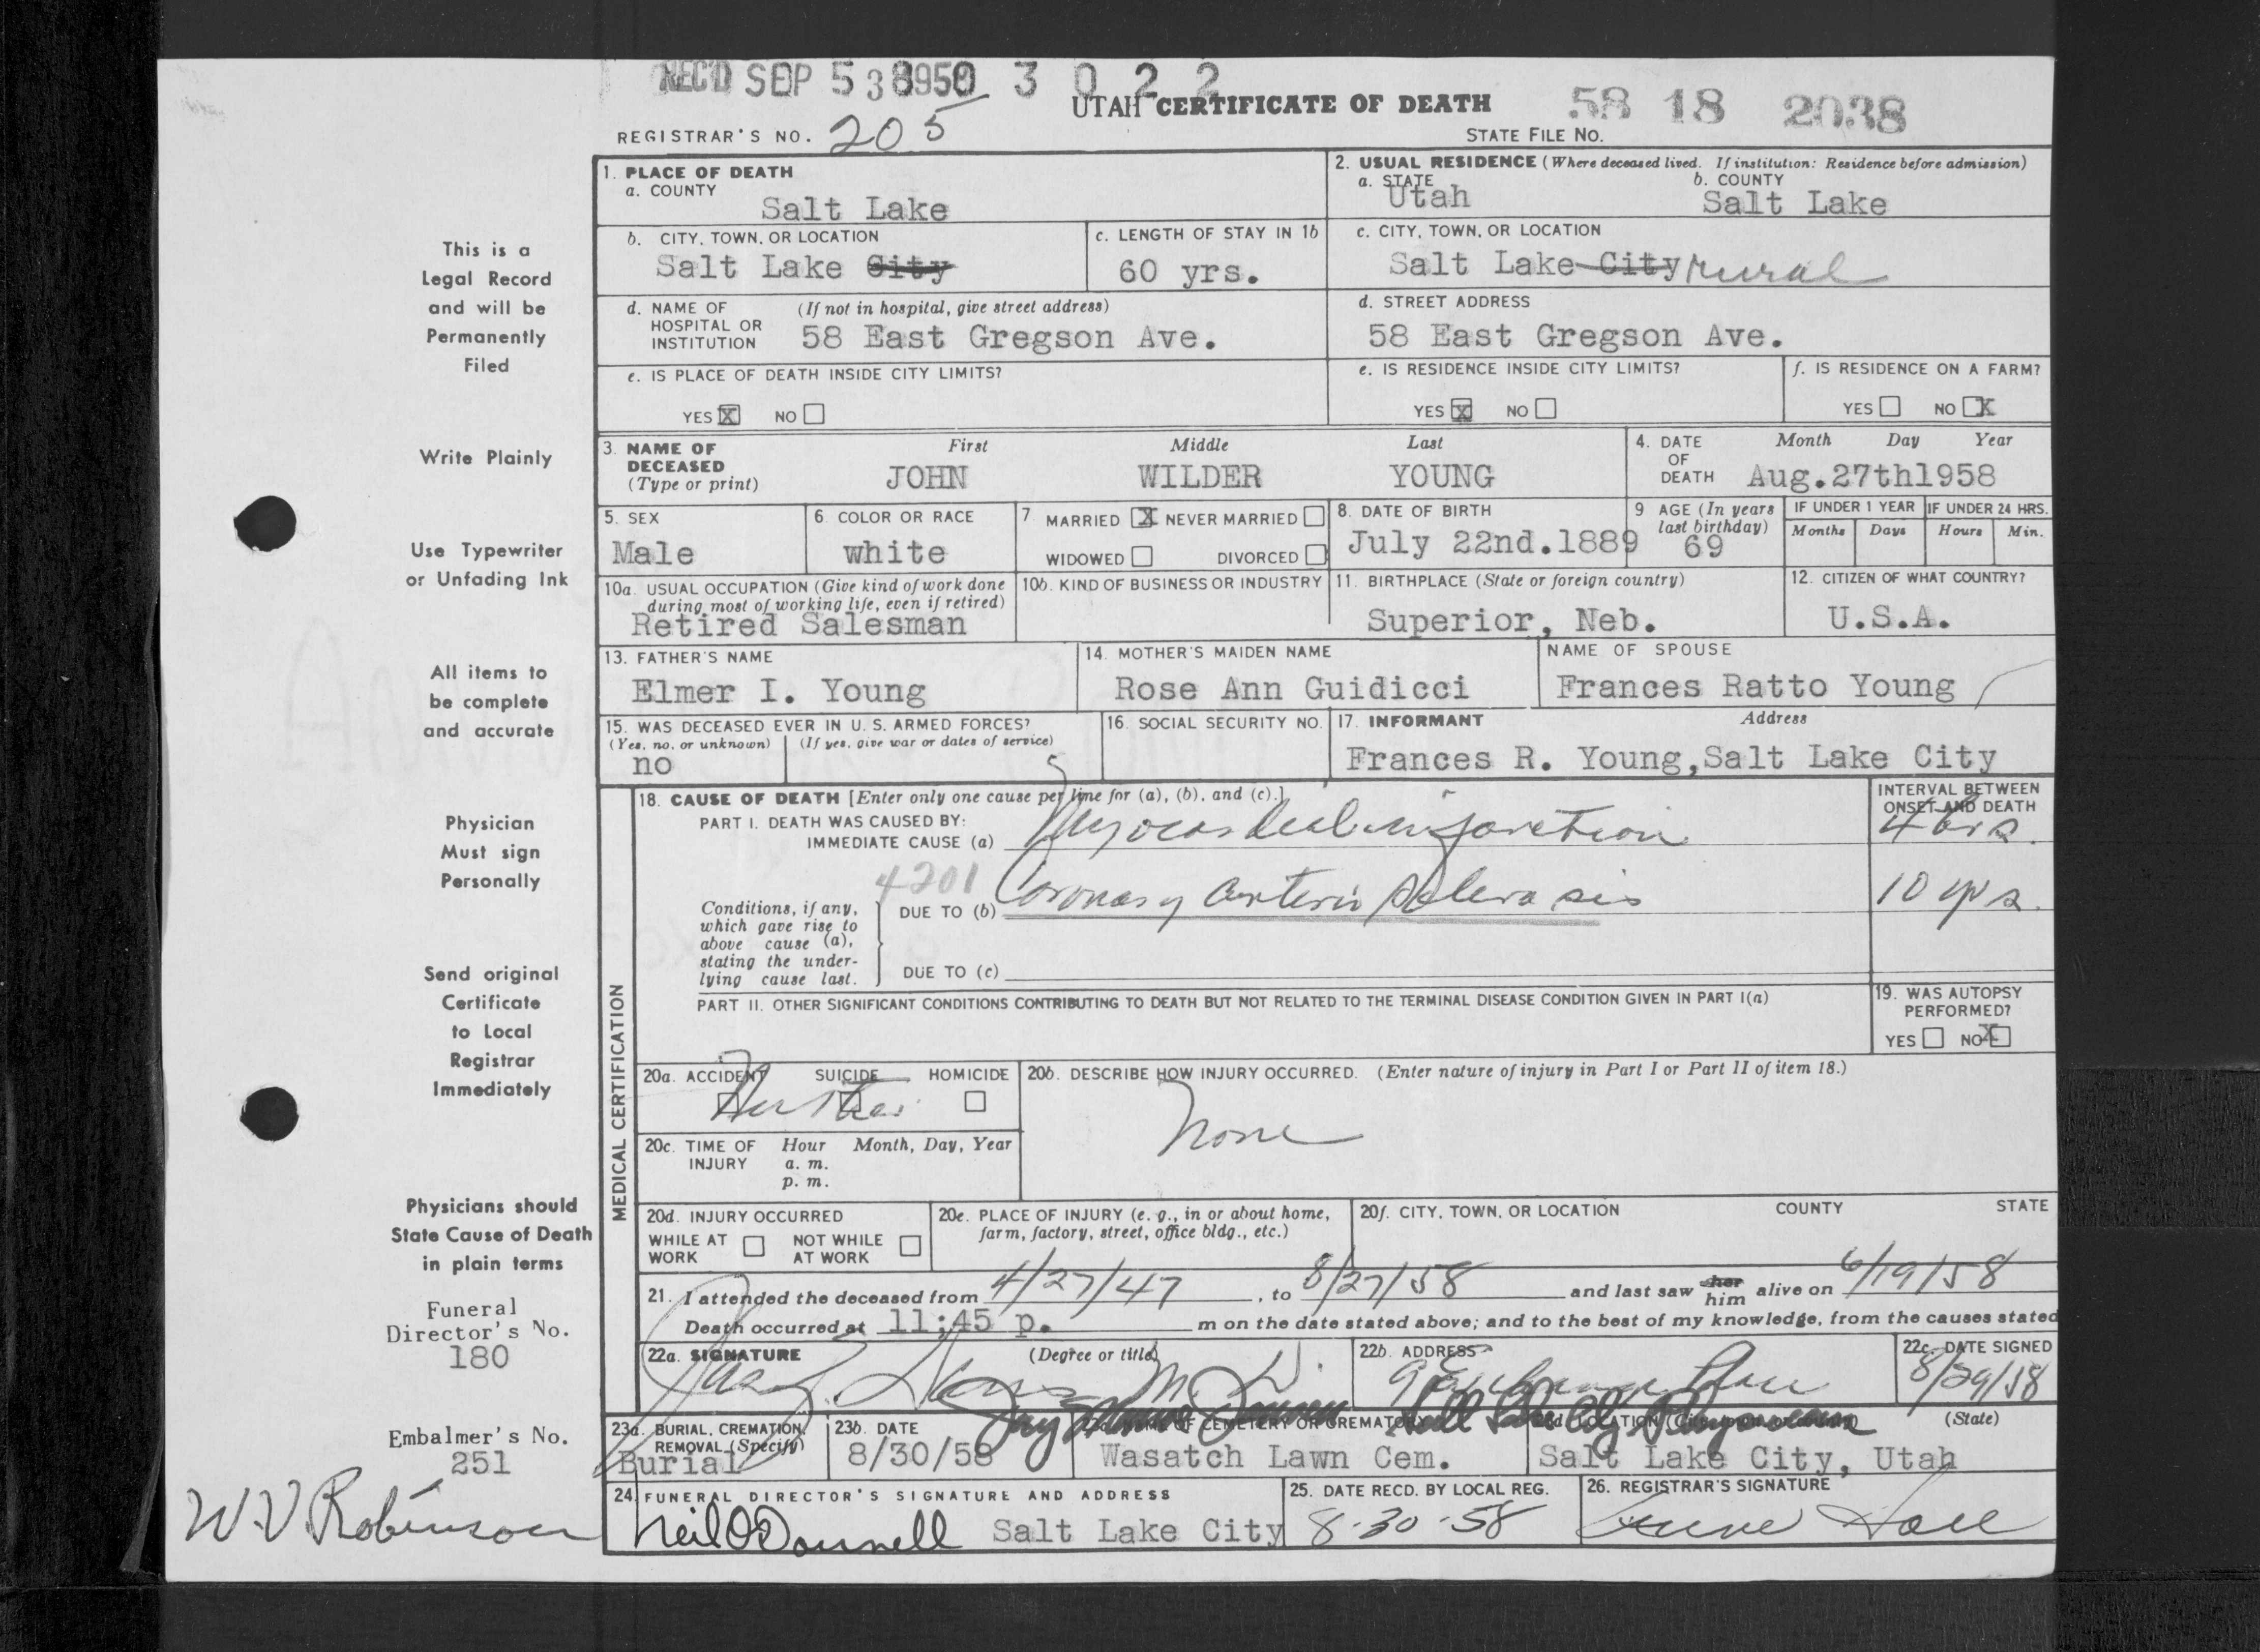 REC'D SEP 5 1958
3 0 2 2
UTAH CERTIFICATE OF DEATH
58 18 2038
REGISTRAR'S NO. 205
STATE FILE NO.
This is a
Legal Record
and will be
Permanently
Filed
Write Plainly
Use Typewriter
or Unfading Ink
All items to
be complete
and accurate
Physician
Must sign
Personally
Send original
Certificate
to Local
Registrar
Immediately
Physicians should
State Cause of Death
in plain terms
Funeral
Director's No.
180
Embalmer's No.
251
W.V. Robinson
1. PLACE OF DEATH
a. COUNTY
Salt Lake
2. USUAL RESIDENCE (Where deceased lived. If institution: Residence before admission)
a. STATE b. COUNTY
Utah Salt Lake
b. CITY, TOWN, OR LOCATION
Salt Lake City
c. LENGTH OF STAY IN 1b
60 yrs.
c. CITY, TOWN, OR LOCATION
Salt Lake City rural
d. NAME OF HOSPITAL OR INSTITUTION (If not in hospital, give street address)
58 East Gregson Ave.
d. STREET ADDRESS
58 East Gregson Ave.
e. IS PLACE OF DEATH INSIDE CITY LIMITS?
YES X NO
e. IS RESIDENCE INSIDE CITY LIMITS?
YES X NO
f. IS RESIDENCE ON A FARM?
YES NO X
3. NAME OF DECEASED (Type or print)
First Middle Last
JOHN WILDER YOUNG
4. DATE OF DEATH
Month Day Year
Aug.27th1958
5. SEX
Male
6. COLOR OR RACE
white
7 MARRIED X NEVER MARRIED
WIDOWED DIVORCED
8. DATE OF BIRTH
July 22nd.1889
9 AGE (In years last birthday)
69
IF UNDER 1 YEAR IF UNDER 24 HRS.
Months Days Hours Min.
10a. USUAL OCCUPATION (Give kind of work done
during most of working life, even if retired)
Retired Salesman
10b. KIND OF BUSINESS OR INDUSTRY
11. BIRTHPLACE (State or foreign country)
Superior, Neb.
12. CITIZEN OF WHAT COUNTRY?
U.S.A.
13. FATHER'S NAME
Elmer I. Young
14. MOTHER'S MAIDEN NAME
Rose Ann Guidicci
NAME OF SPOUSE
Frances Ratto Young
15. WAS DECEASED EVER IN U. S. ARMED FORCES?
(Yes, no, or unknown) (If yes, give war or dates of service)
no
16. SOCIAL SECURITY NO.
17. INFORMANT Address
Frances R. Young,Salt Lake City
MEDICAL CERTIFICATION
18. CAUSE OF DEATH [Enter only one cause per line for (a), (b), and (c).]
INTERVAL BETWEEN
ONSET AND DEATH
PART I. DEATH WAS CAUSED BY:
IMMEDIATE CAUSE (a) Myocardial infarction 4 hrs.
4201
Conditions, if any,
which gave rise to
above cause (a),
stating the under-
lying cause last.
DUE TO (b) Coronary Arterio Sclerosis 10 yrs.
DUE TO (c)
PART II. OTHER SIGNIFICANT CONDITIONS CONTRIBUTING TO DEATH BUT NOT RELATED TO THE TERMINAL DISEASE CONDITION GIVEN IN PART I(a)
19. WAS AUTOPSY
PERFORMED?
YES NO X
20a. ACCIDENT SUICIDE HOMICIDE
20b. DESCRIBE HOW INJURY OCCURRED. (Enter nature of injury in Part I or Part II of item 18.)
none
20c. TIME OF INJURY Hour Month, Day, Year
a. m.
p. m.
20d. INJURY OCCURRED
WHILE AT WORK NOT WHILE AT WORK
20e. PLACE OF INJURY (e. g., in or about home,
farm, factory, street, office bldg., etc.)
20f. CITY, TOWN, OR LOCATION COUNTY STATE
21. I attended the deceased from 4/27/47, to 8/27/58 and last saw her him alive on 6/19/58
Death occurred at 11;45 p. m on the date stated above; and to the best of my knowledge, from the causes stated
22a. SIGNATURE (Degree or title)
M.D.
22b. ADDRESS
22c. DATE SIGNED
8/29/58
23a. BURIAL, CREMATION,
REMOVAL (Specify)
Burial
23b. DATE
8/30/58
OF CEMETERY OR CREMATORY
Wasatch Lawn Cem.
LOCATION (State)
Salt Lake City, Utah
24 FUNERAL DIRECTOR'S SIGNATURE AND ADDRESS
Neil O'Donnell Salt Lake City
25. DATE RECD. BY LOCAL REG.
8-30-58
26. REGISTRAR'S SIGNATURE